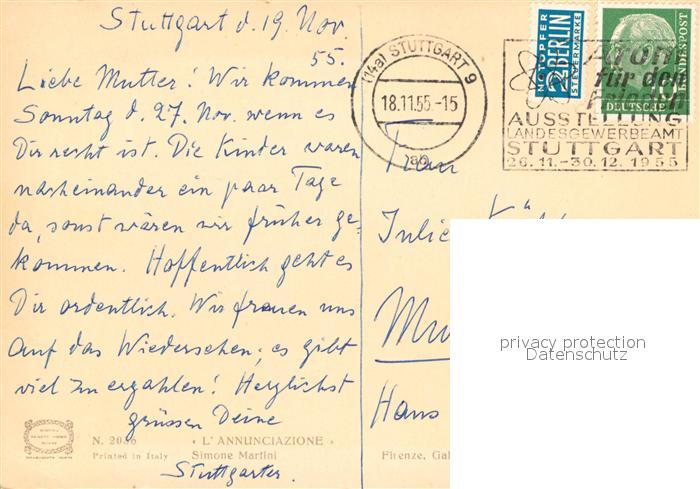 Stuttgart d. 19. Nov.
55.
Liebe Mutter! Wir kommen
Sonntag d. 27. Nov. wenn es
Dir recht ist. Die Kinder waren
nacheinander ein paar Tage
da, sonst wären wir früher ge-
kommen. Hoffentlich geht es
Dir ordentlich. Wir freuen uns
auf das Wiedersehen; es gibt
viel zu erzählen! Herzlichst
grüssen Deine
Stuttgarter.
N. 2036 « L'ANNUNCIAZIONE »
Printed in Italy Simone Martini
Firenze, Gal
(14a) STUTTGART 9
18.11.55-15
NOTOPFER
2 BERLIN
STEUERMARKE
DEUTSCHE BUNDESPOST
Atom
für den
Frieden
AUSSTELLUNG
LANDESGEWERBEAMT
STUTTGART
26.11.-30.12.1955
Frau
Julie
Hans
privacy protection
Datenschutz